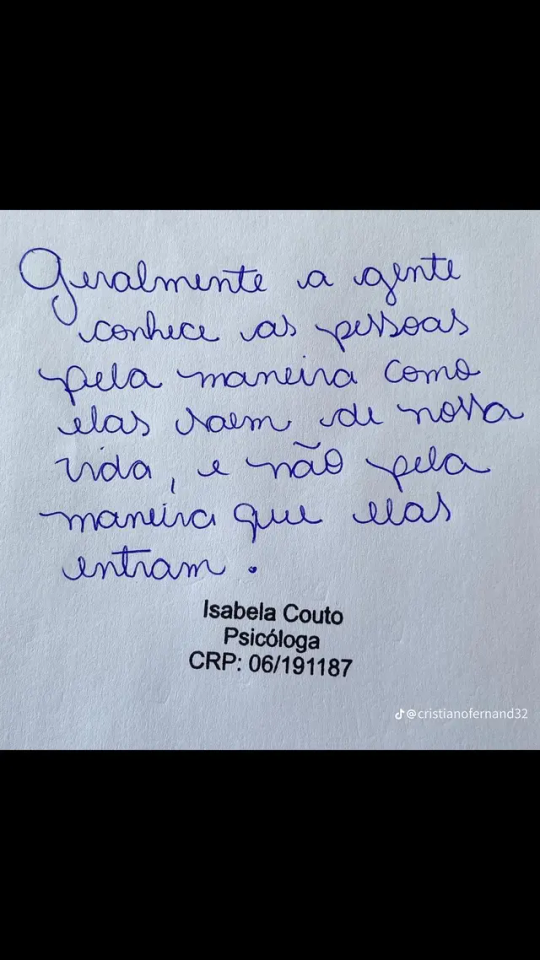 Geralmente a gente
conhece as pessoas
pela maneira como
elas saem de nossa
vida, e não pela
maneira que elas
entram.
Isabela Couto
Psicóloga
CRP: 06/191187
@cristianofernand32